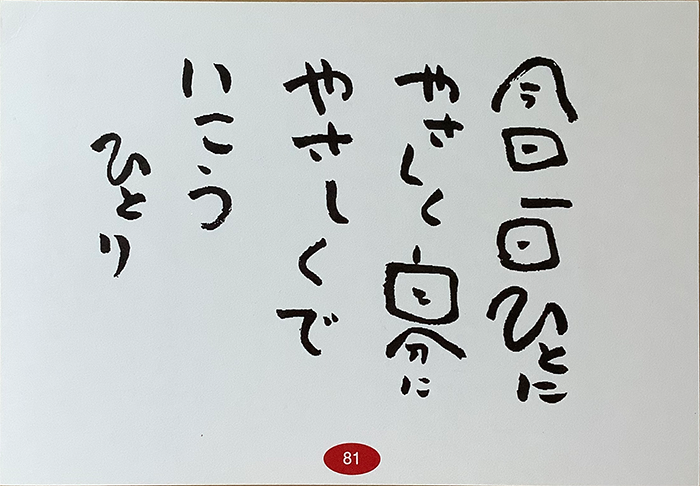 今日一日ひとに
やさしく自分に
やさしくで
いこう
ひとり
81